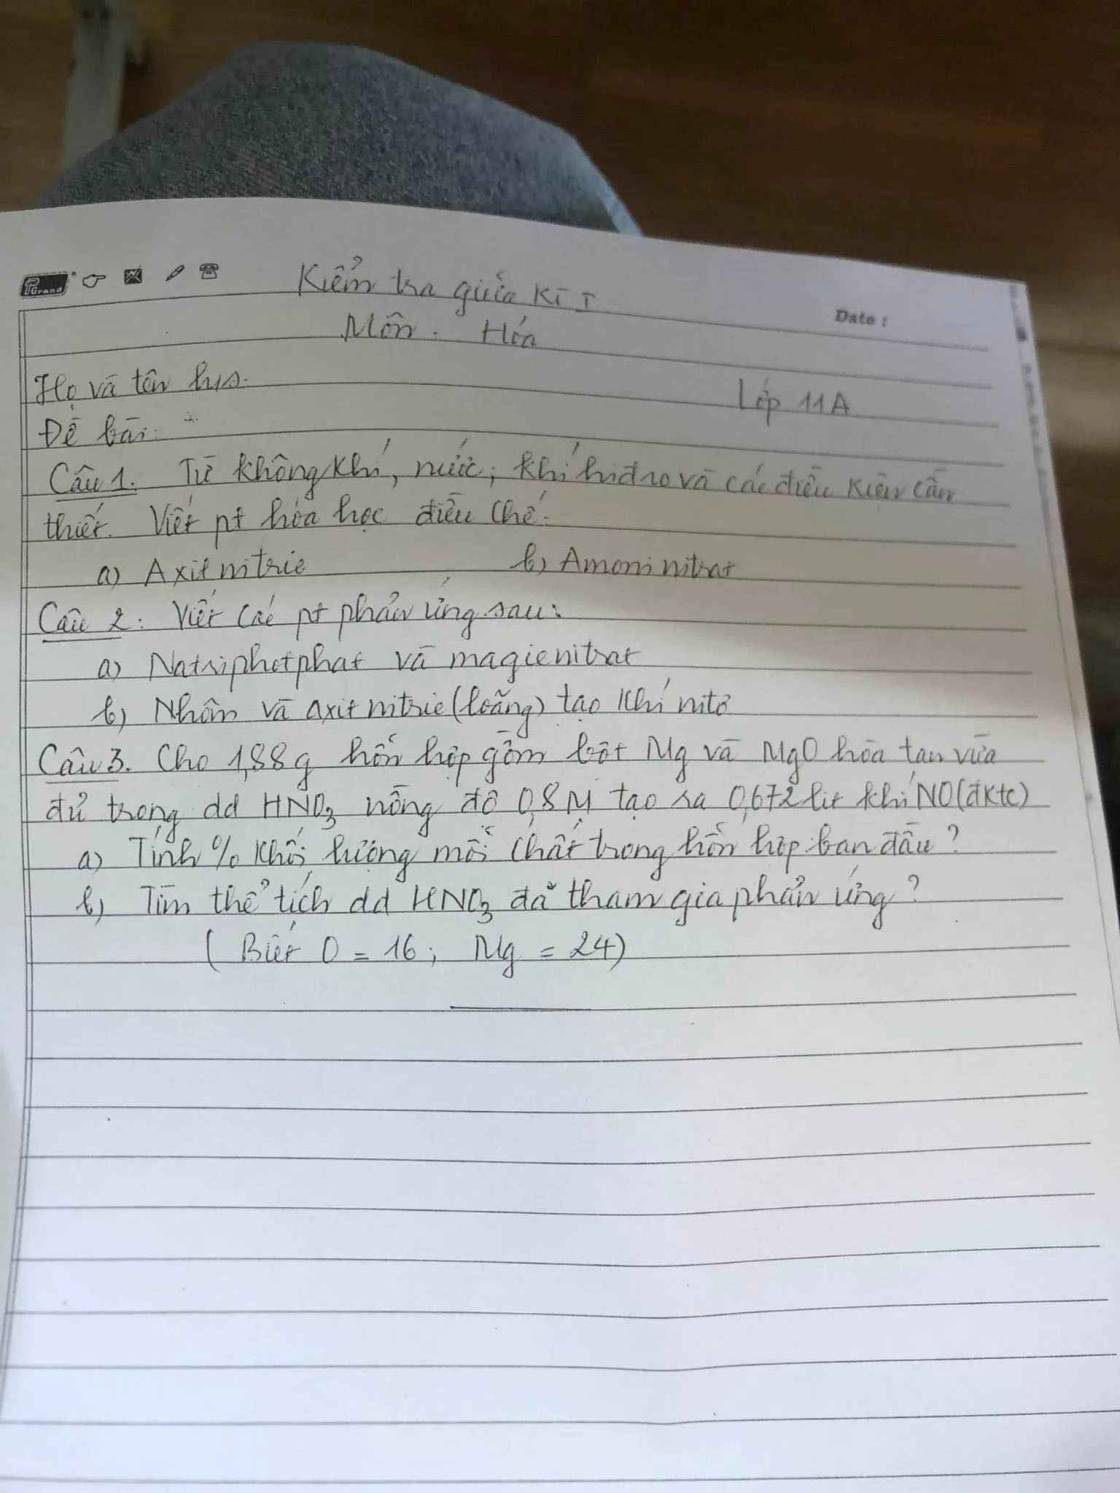 PGrand
Kiểm tra giữa kì I
Date:
Môn: Hóa
Họ và tên hs.
Lớp 11A
Đề bài:
Câu 1. Từ không khí, nước, khí hiđro và các điều kiện cần
thiết. Viết pt hóa học điều chế:
a) Axit nitric b) Amoni nitrat
Câu 2: Viết các pt phản ứng sau:
a) Natriphotphat và magienitrat
b) Nhôm và axit nitric (loãng) tạo khí nitơ
Câu 3. Cho 1,88g hỗn hợp gồm bột Mg và MgO hòa tan vừa
đủ trong dd HNO₃ nồng độ 0,8M tạo ra 0,672 lit khí NO (đktc)
a) Tính % khối lượng mỗi chất trong hỗn hợp ban đầu?
b) Tìm thể tích dd HNO₃ đã tham gia phản ứng?
(Biết O = 16; Mg = 24)